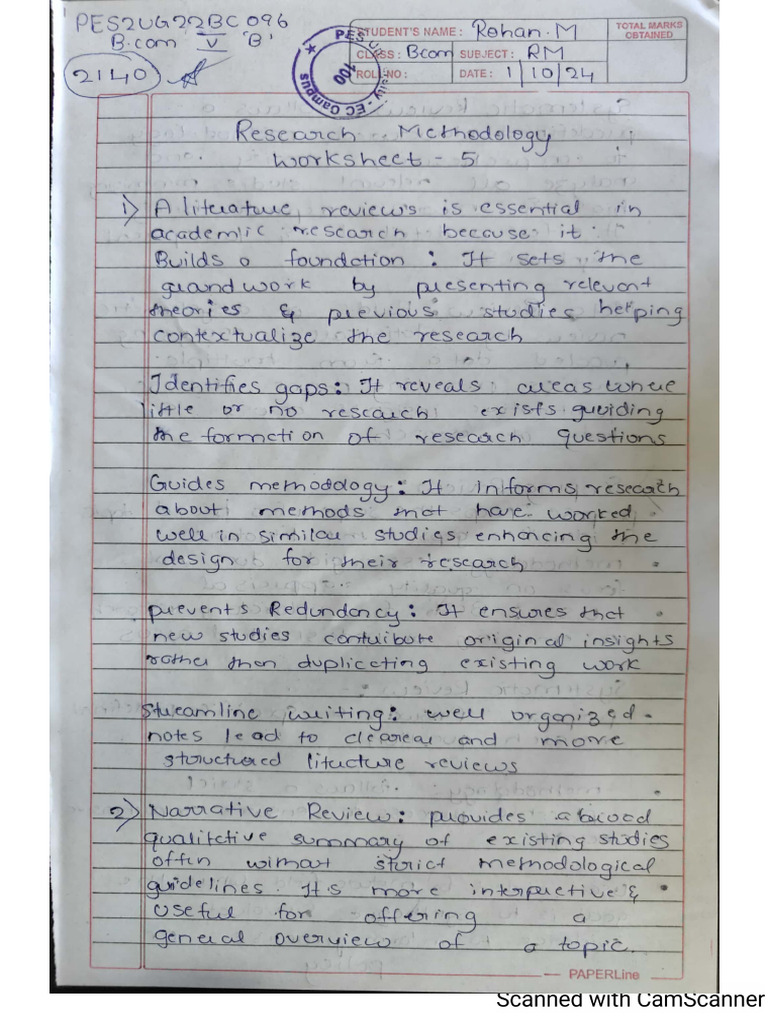 PES2UG22BC096
B.com V 'B'
2140
STUDENT'S NAME : Rohan. M
CLASS : Bcom SUBJECT : RM
ROLL NO : DATE : 1/10/24
TOTAL MARKS
OBTAINED
PES University - EC Campus
100
Research Methodology
Worksheet - 5
1) A literature reviews is essential in
academic research because it :
Builds a foundation : It sets the
groundwork by presenting relevant
theories & previous studies helping
contextualize the research
Identifies gaps : It reveals areas where
little or no research exists guiding
the formation of research questions
Guides methodology : It informs research
about methods that have worked
well in similar studies enhancing the
design for their research
prevents Redundancy : It ensures that
new studies contribute original insights
rather than duplicating existing work
Streamline writing : well organized
notes lead to clearear and more
structured literature reviews
2) Narrative Review : provides a broad
qualitative summary of existing studies
often without strict methodological
guidelines. Its more interpretive &
useful for offering a
general overview of a topic.
PAPERLine
Scanned with CamScanner